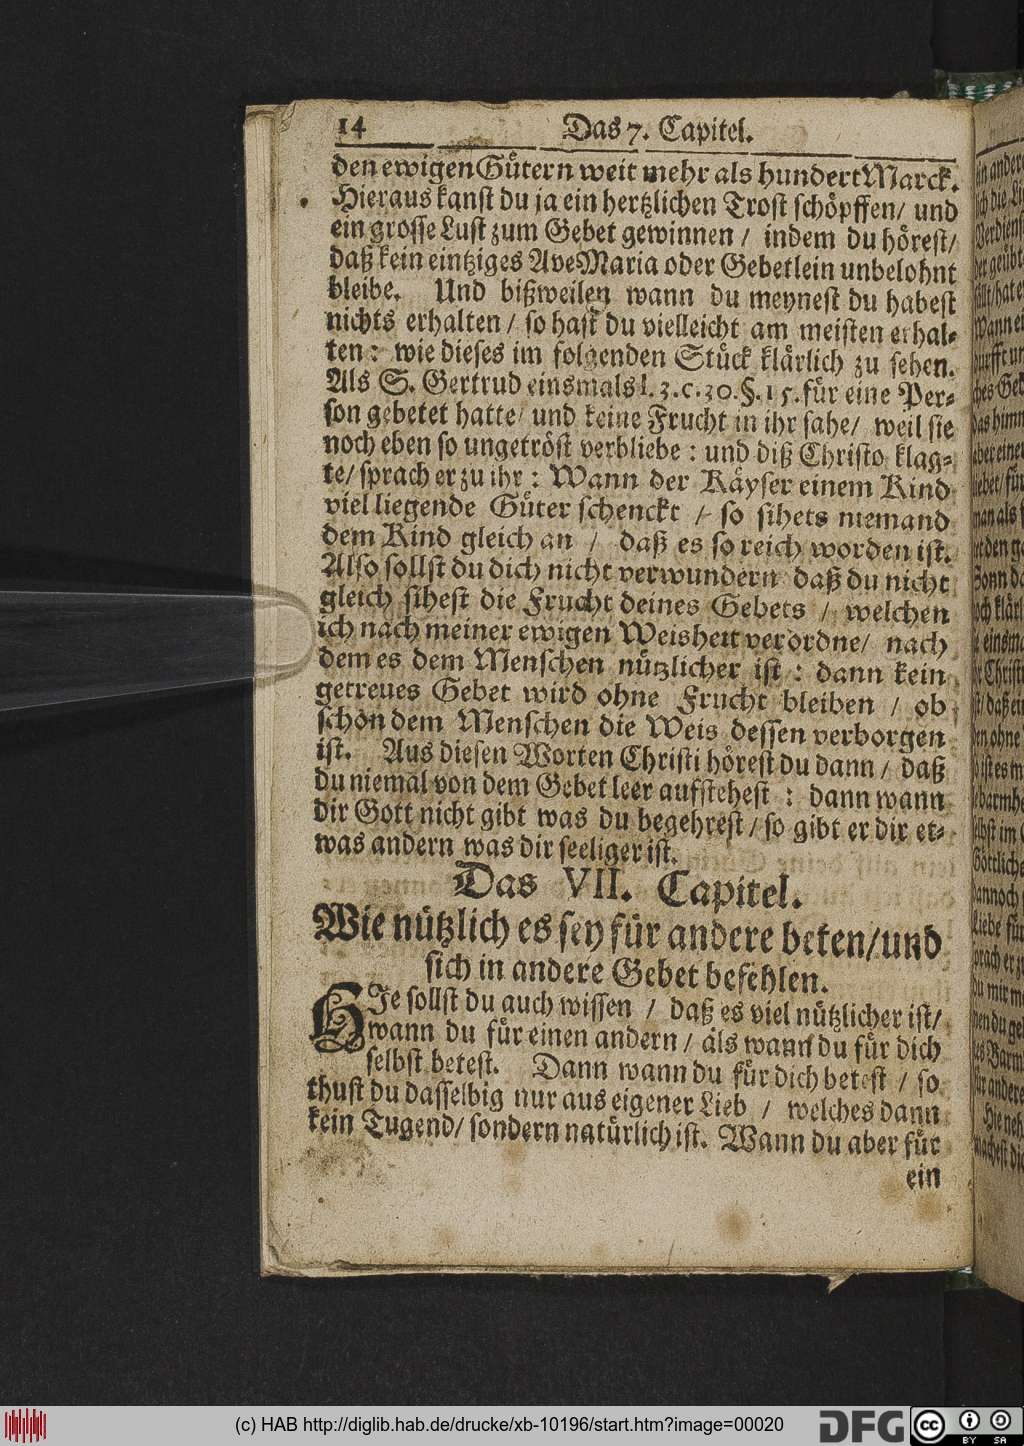 14 Das 7. Capitel.
den ewigen Gütern weit mehr als hundert Marck.
Hieraus kanst du ja ein hertzlichen Trost schöpffen/ und
ein grosse Lust zum Gebet gewinnen / indem du hörest/
daß kein eintziges Ave Maria oder Gebetlein unbelohnt
bleibe. Und bißweilen wann du meynest du habest
nichts erhalten / so hast du vielleicht am meisten erhal-
ten: wie dieses im folgenden Stück klärlich zu sehen.
Als S. Gertrud einsmals l. 3. c. 30. §. 15. für eine Per-
son gebetet hatte/ und keine Frucht in ihr sahe/ weil sie
noch eben so ungetröst verbliebe: und diß Christo klag-
te/ sprach er zu ihr: Wann der Käyser einem Kind
viel liegende Güter schenckt / so sihets niemand
dem Kind gleich an / daß es so reich worden ist.
Also sollst du dich nicht verwundern daß du nicht
gleich sihest die Frucht deines Gebets / welchen
ich nach meiner ewigen Weisheit verordne/ nach
dem es dem Menschen nützlicher ist: dann kein
getreues Gebet wird ohne Frucht bleiben / ob
schon dem Menschen die Weis dessen verborgen
ist. Aus diesen Worten Christi hörest du dann / daß
du niemal von dem Gebet leer aufstehest: dann wann
dir Gott nicht gibt was du begehrest / so gibt er dir et-
was andern was dir seeliger ist.
Das VII. Capitel.
Wie nützlich es sey für andere beten/ und
sich in andere Gebet befehlen.
HIe sollst du auch wissen / daß es viel nützlicher ist/
wann du für einen andern / als wann du für dich
selbst betest. Dann wann du für dich betest / so
thust du dasselbig nur aus eigener Lieb / welches dann
kein Tugend/ sondern natürlich ist. Wann du aber für
ein
(c) HAB http://diglib.hab.de/drucke/xb-10196/start.htm?image=00020
DFG
cc BY SA